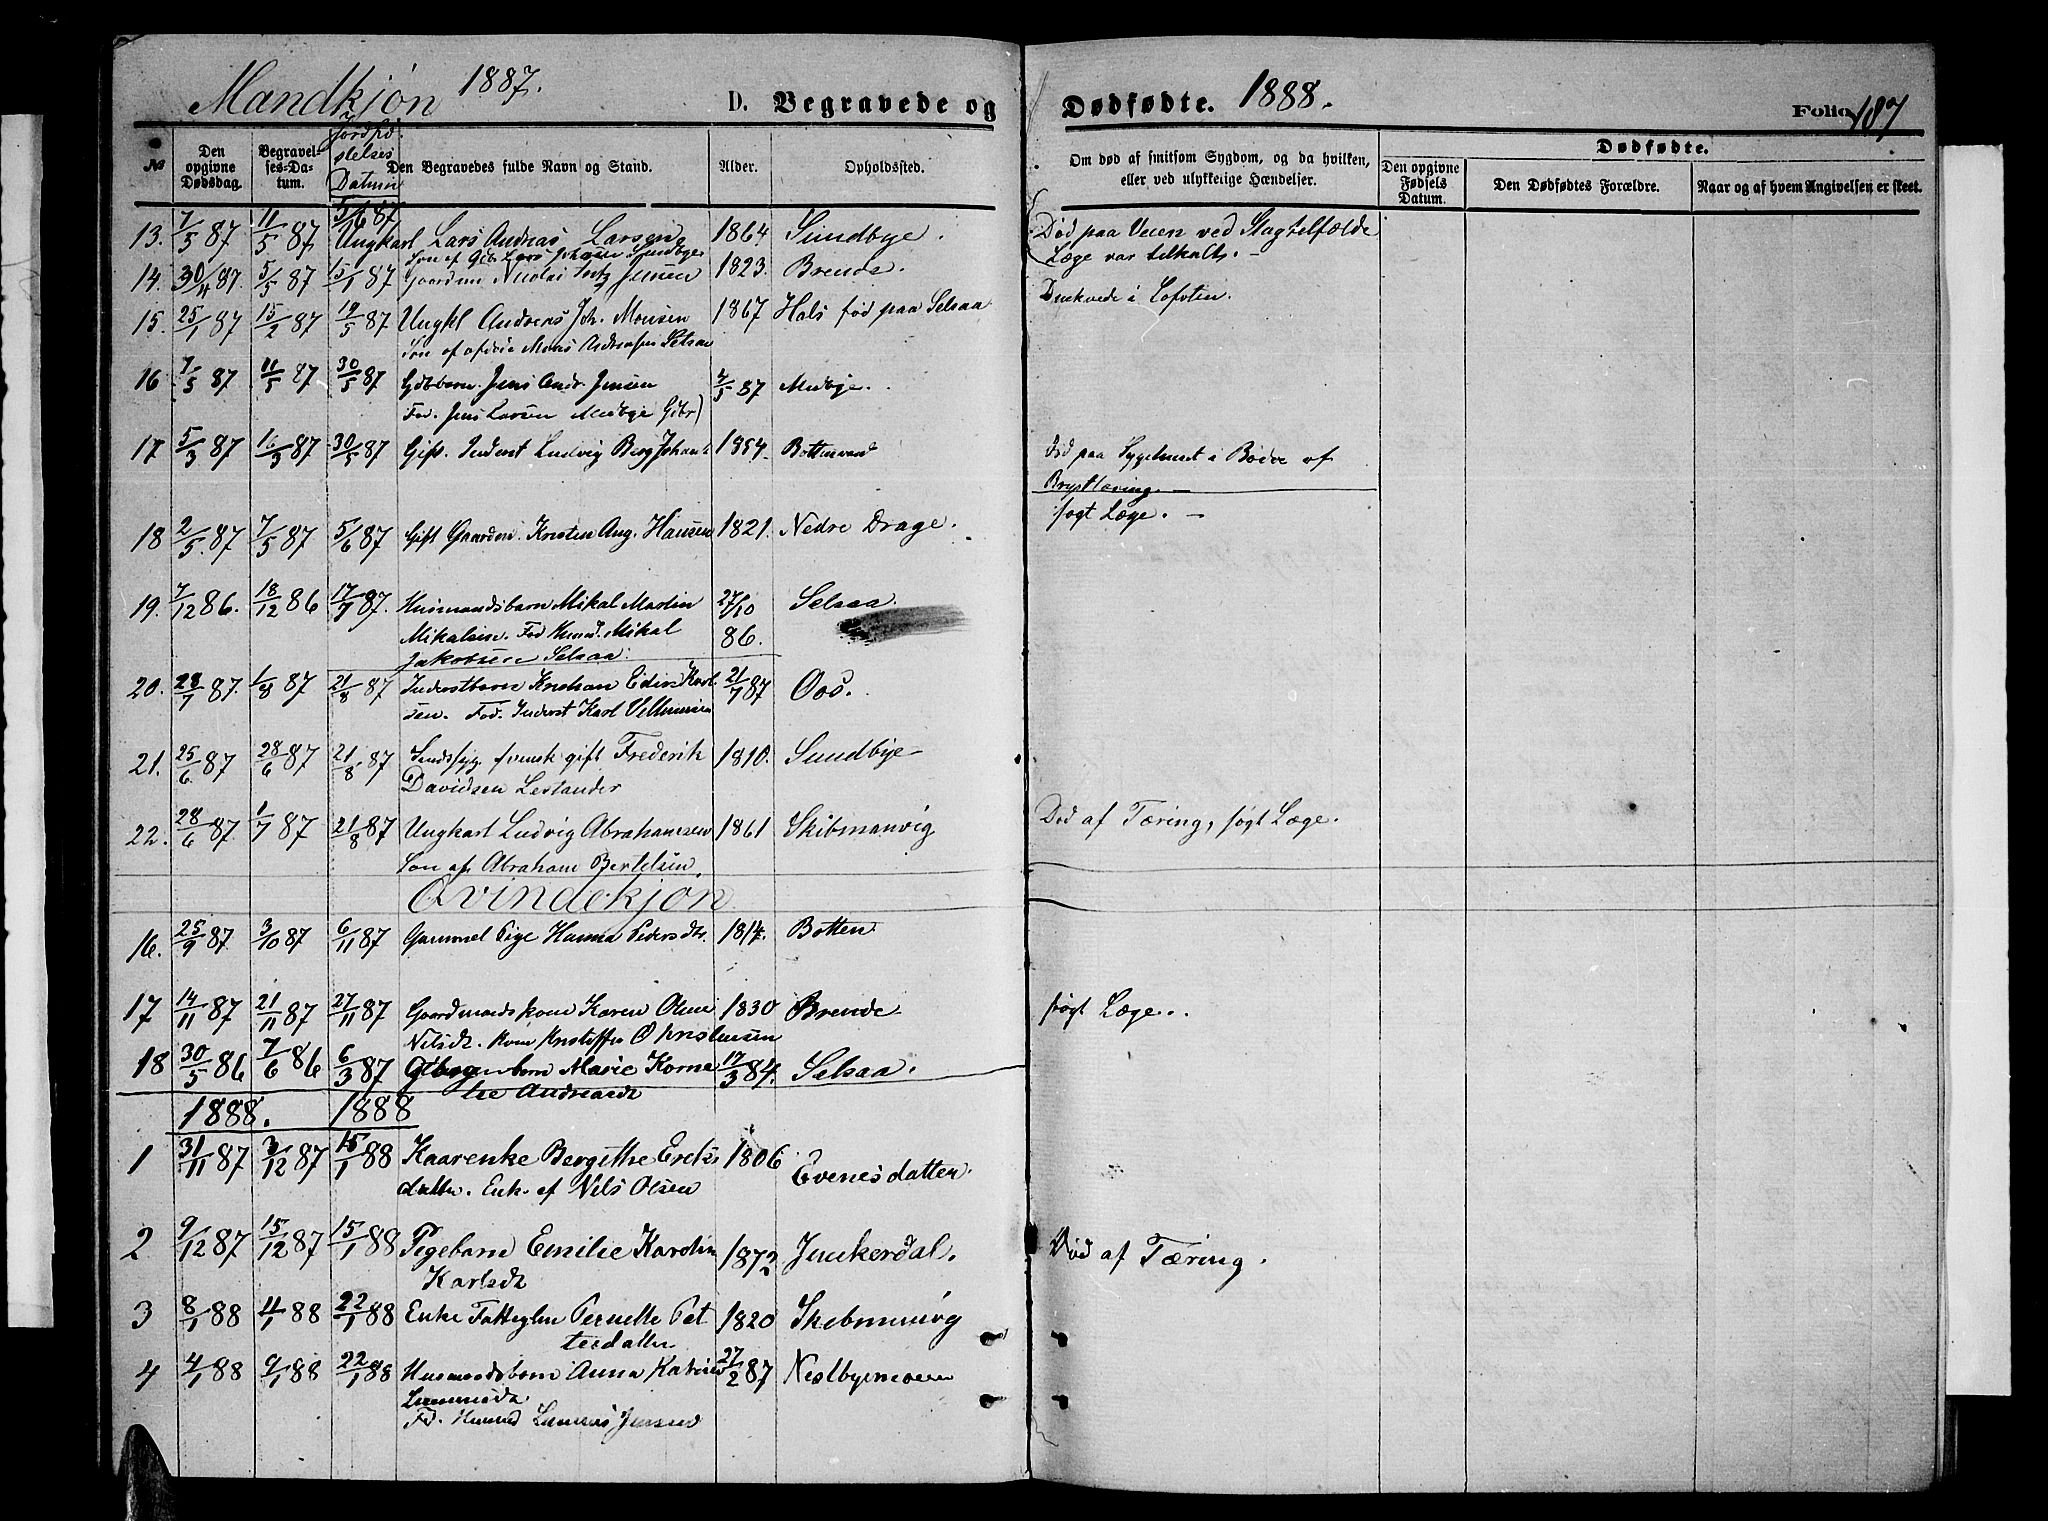 Mandkjön 1887. D. Begravede og Dødfødte. 1888. Folio 187
Jordfæstelses Datum
№ Den opgivne Dødsdag. Begravelses-Datum. Den Begravedes fulde Navn og Stand. Alder. Opholdssted. Om død af smitsom Sygdom, og da hvilken, eller ved ulykkelige Hændelser. Den opgivne Fødsels Datum. Dødfødte. Den Dødfødtes Forældre. Naar og af hvem Angivelsen er skeet.
13. 7/5 87 11/5 87 5/6 87 Ungkarl Lars Andreas Larsen 1864 Sundbye. Død paa Veien ved
Søn af Gbr. Lars Johansen Sundbye Læge var tilkaldt. -
14. 30/4 87. 5/5 87 15/1 87 Gaardm Nicolai Jentz Jensen 1823. Brende. Druknede i Lofoten.
15. 25/1 87 15/2 87 19/5 87 Ungkl Andreas Joh. Monsen 1867 Hals fød paa Selsaa
Søn af afdøde Mons Andreasen Selsaa
16 7/5 87 11/5 87 30/5 87 Gdbbarn. Jens Andr. Jensen 4/5 87 Medbye.
Fad. Jens Larsen Medbye Gdbr)
17 5/3 87 16/3 87 30/5 87 Gift. Inderst Ludvig Berg Johans 1854. Bottenvand død paa Sygehuset i Bodøe af
Brysttæring. -
18 2/5. 87 7/5 87 5/6 87 Gift Gaardm. Kristen Aug. Hansen 1821. Nedre Drage. søgt Læge. -
19. 7/12 86. 18/12 86 17/7 87. Husmandsbarn Mikal Martin 27/10 86. Selsaa.
Mikalsen. Fad Husmd. Mikal
Jakobsen Selsaa.
20. 28/7 87. 1/8 87 21/8 87 Inderstbarn Kristian Edin Karl 21/7 87 Oos.
sen. Fad. Inderst Karl Velhumsen
21. 25/6 87 28/6 87 21/8 87 Sindssyg svensk gift Frederik 1810. Sundbye-
Davidsen Lestander
22. 28/6 87. 1/7 87 21/8 87 Ungkarl Ludvig Abrahamsen 1861 Skibmanvig Død af Tæring, søgt Læge.
Søn af Abraham Bertelsen.
Qvindekjön
16. 25/9 87 3/10 87 6/11 87 Gammel Pige Hanna Pedersdtr. 1814. Botten
17 14/11 87 21/11 87 27/11 87 Gaardmandskone Karen Oline 1830 Brende søgt Læge..
Nilsdt. Kone Kristoffer Christensen
18 30/5 86 7/6 86 6/3 87 barn Marie Korne 17/3 84. Selsaa.
lie Andreasdt
1888. 1888
1 31/11 87 3/12 87 15/1 88 Kaarenke Bergithe Ereks 1806 Evenesdatten.
datter. Enk. af Nils Olsen
2 9/12 87 15/12 87 15/1 88 Pigebarn Emilie Karolin 1872 Junkerdal. Død af Tæring.
Karlsdt
3 8/1 88 11/1 88 22/1 88 Enke Fattiglem Pernelle Pet 1820 Skibmanvig
tersdatter
4 4/1 88 9/1 88 22/1 88 Husmandsbarn Anna Katrine 27/2 87 Nestbyemoen
Lummsdt
Fd. Husmd Jensen